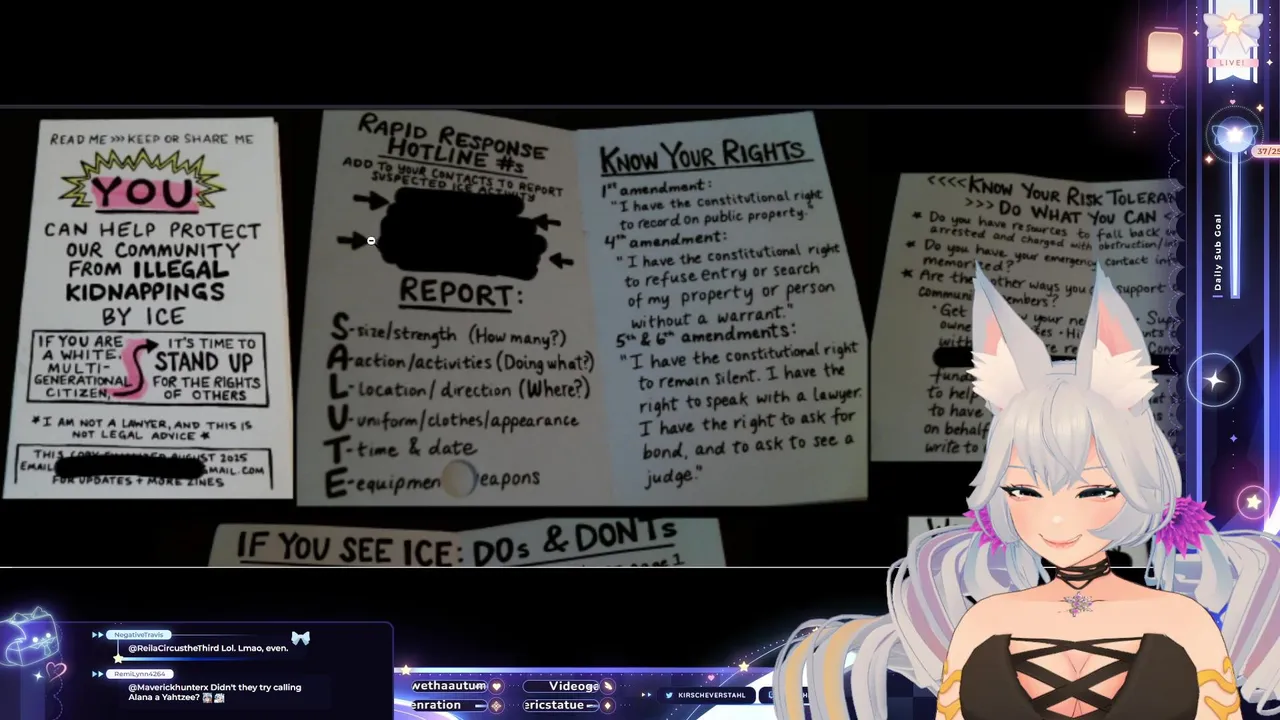 READ ME >>> KEEP OR SHARE ME
YOU
CAN HELP PROTECT
OUR COMMUNITY
FROM ILLEGAL
KIDNAPPINGS
BY ICE
IF YOU ARE
A WHITE,
MULTI-
GENERATIONAL
CITIZEN,
IT'S TIME TO
STAND UP
FOR THE RIGHTS
OF OTHERS
*I AM NOT A LAWYER, AND THIS IS
NOT LEGAL ADVICE *
THIS AUGUST 2025
EMAIL GMAIL.COM
FOR UPDATES + MORE ZINES
RAPID RESPONSE
HOTLINE #s
ADD TO YOUR CONTACTS TO REPORT
SUSPECTED ICE ACTIVITY
REPORT:
S-size/strength (How many?)
A-action/activities (Doing what?)
L-location/direction (Where?)
U-uniform/clothes/appearance
T-time & date
E-equipmen eapons
KNOW YOUR RIGHTS
1st amendment:
"I have the constitutional right
to record on public property."
4th amendment:
"I have the constitutional right
to refuse entry or search
of my property or person
without a warrant."
5th & 6th amendments:
"I have the constitutional right
to remain silent. I have the
right to speak with a lawyer.
I have the right to ask for
bond, and to ask to see a
judge."
<<<<KNOW YOUR RISK TOLERA
>>> DO WHAT YOU CAN <
* Do you have resources to fall back
arrested and charged with obstruction/
* Do you have your emergency contact
memorized?
* Are the other ways you support
members?
Get your
owne
with
to help
to have
on behalf
write to
IF YOU SEE ICE: DOs & DON'Ts
LIVE!
37/25
Daily Sub Goal
NegativeTravis
@ReilaCircustheThird Lol. Lmao, even.
RemiLynn4264
@Maverickhunterx Didn't they try calling
Alana a Yahtzee?
wethaautum
Videoga
enration
ericstatue
KIRSCHEVERSTAHL